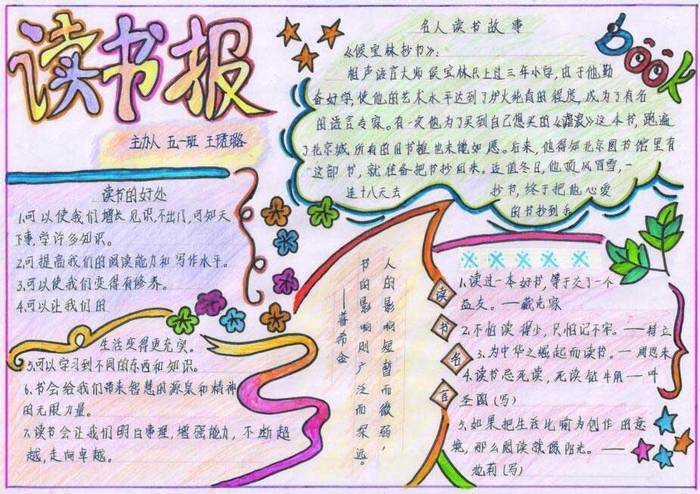 读书报
主办人 五一班 王珺璐
名人读书故事
《侯宝林抄书》:
相声语言大师侯宝林只上过三年小学,由于他勤
奋好学,使他的艺术水平达到了炉火纯青的程度,成为了有名
的语言专家。有一次他为了买到自己想买的《谑浪》这本书,跑遍
了北京城所有的旧书摊也未能如愿。后来,他得知北京图书馆里有
这部书,就准备把书抄回来。适值冬日,他顶风冒雪,一
连十八天去 抄书,终于把他心爱
的书抄到手
BOOK
读书的好处
1.可以使我们增长见识,不出门,可知天
下事,学许多知识。
2.可提高我们的阅读能力和写作水平。
3.可以使我们变得有修养。
4.可以让我们的
生活变得更充实。
5.可以学习到不同的东西和知识。
6.书会给我们带来智慧的源泉和精神
的无限力量。
7.读书会让我们明白事理,增强能力,不断超
越,走向卓越。
人的影响短暂而微弱,
书的影响则广泛而深远。
——普希金
读书名言
1.读过一本好书,等于交了一个
益友。——臧克家
2.不怕读得少,只怕记不牢。——
3.为中华之崛起而读书。——周恩来
4.读书忌死读,死读钻牛角——叶
圣陶(写)
5.如果把生活比喻为创作的意
境,那么阅读就像阳光。——
池莉(写)